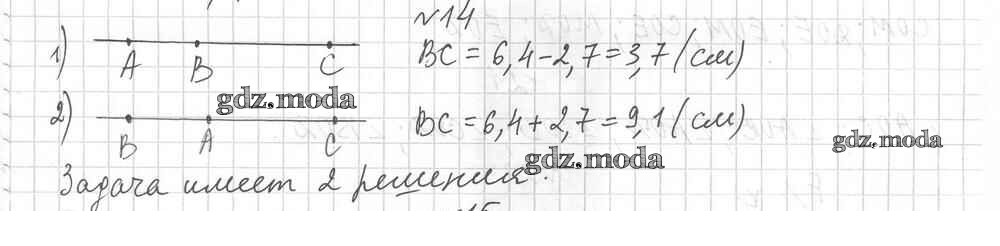 №14
1) A B C BC = 6,4 - 2,7 = 3,7 (см)
gdz.moda
2) B A C BC = 6,4 + 2,7 = 9,1 (см)
gdz.moda
gdz.moda
Задача имеет 2 решения.